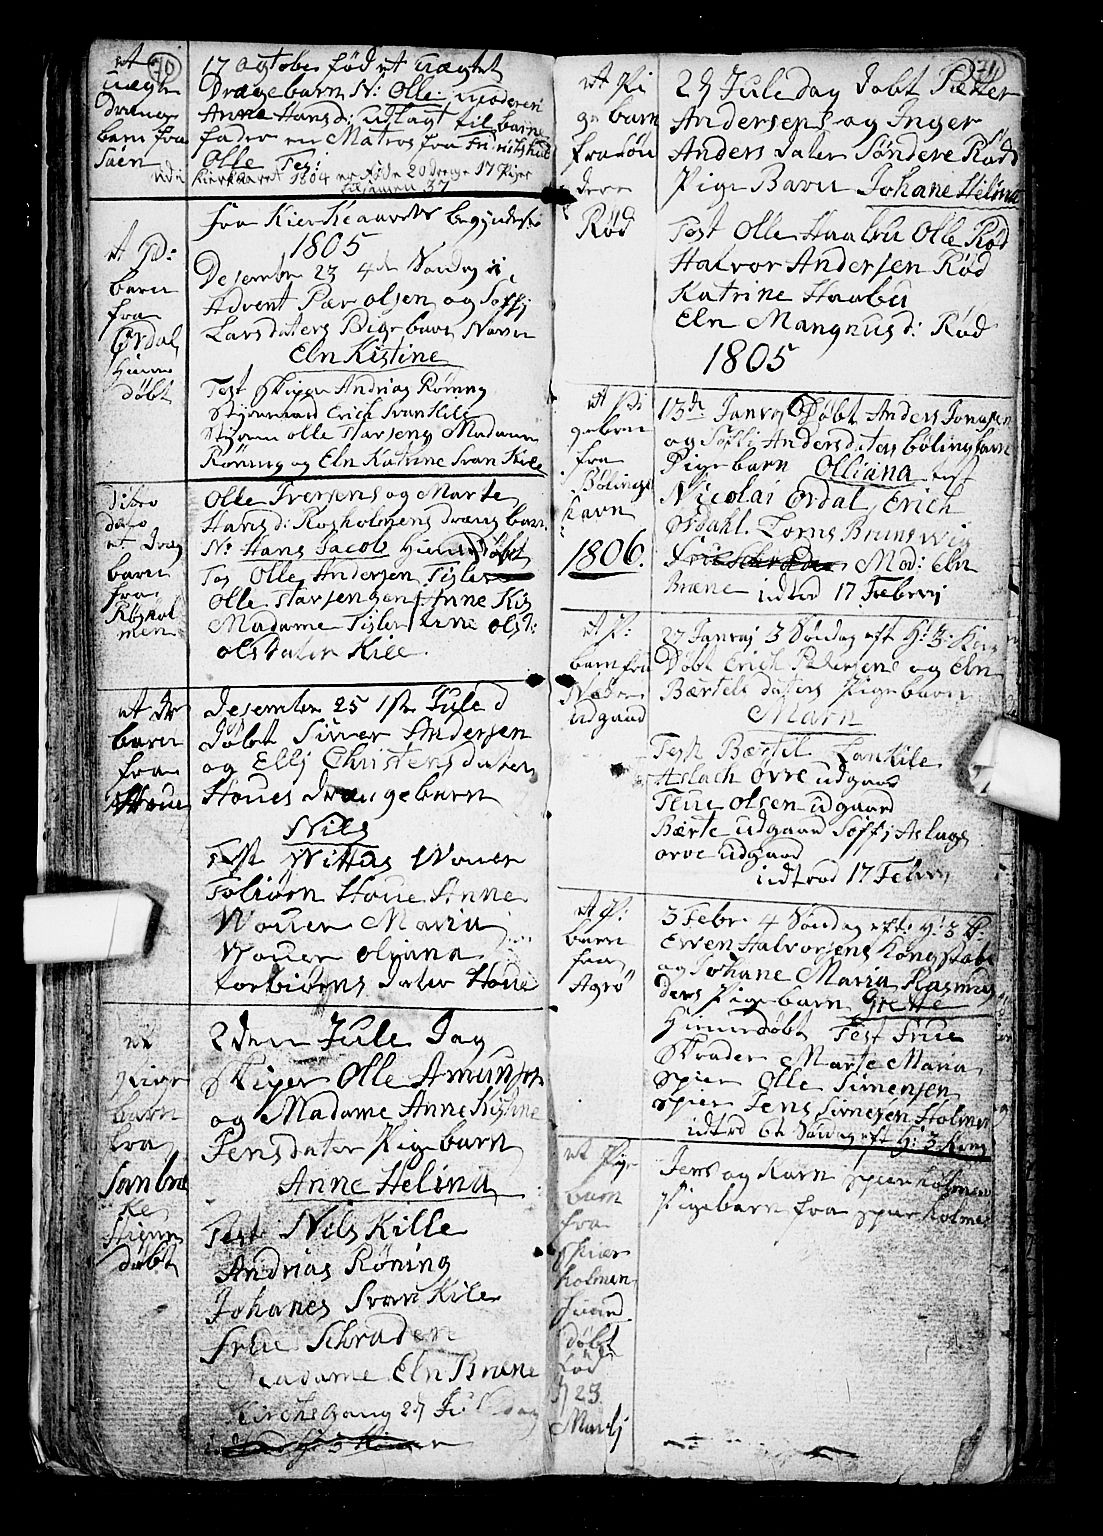 70
et
uægte
Drænge
barn fra
Saen
17 ogtober fød et uægtet
Drægebarn N: Olle: moderen
Anne Hansd: udlagt til barne
fader en Matros fra Fridrichs
Olle Tes:
Kierkaaret 1804 er fødte 20 drenge 17 Piger
tilsamen 37
fra Kierkeaarets begyndelse
1805
et P:
barn
fra
Ordal
Hieme
døbt
Desember 23 4de Søndag i
Advent Pær olsen og Soffi
Larsdaters Pigebarn Navn
Eln Kistine
Test Skiper Andrias Røning
Styrmand Erich Svan Kile
Styrm olle Tarsens Madame
Røning og Eln Katrine Svan Kile
Ditto
dato
et dræng
barn
fra
Roshol
men
Olle Iversens og Marte
Hansd: Rosholmens dræng barn
N: Hans Jacob Hiemedøbt
Tes Olle Andersen Tisler
Olle Tarjensen Anne Kis
Madame Tisler tine ols d:
olsdater Kile
et dr
barn
fra
Houe
Desember 25 1ste Jule d
Døbt Siver Andersen
og Ellj Christensdater
Houes drængebarn
Nils
Test Wittas Wouer
Tobiørn Houe Anne
Wouer Maria
Wouer oliana
torbiørns dater Houe
et
Pige
barn
fra
Sanbræ
ke
Hiem
døbt
2den Jule Dag
Skiper Olle Amunsen
og Madame Anne Kistine
Jensdater Pigebarn
Anne Helina
Test Nils Kille
Andrias Røning
Johanes Svan Kile
Frue Schrader
Madame Eln Bræne
Kirchegang 2den Juledag
71
et Pi
ge barn
fra Søn
dere
Rød
2den Juledag døbt Pætter
Andersens og Inger
Anders dater Søndere Rød
Pige Barn Johane Helina
Test Olle Haabu Olle Rød
Halvor Andersen Rød
Katrine Haabu
Eln Mangnusd: Rød
1805
et Pi
gebarn
fra
Bølings
havn
1806.
13de Janvarj Døbt Anders Jonasen
og Soffi Andersdaters bølingshavn
Pigebarn Olliana test
Nicolai Ordal Erich
Osdahl Lorns Brunswig
Mad: Eln
Bræne idtred 17 Febervj
et P:
barn fra
Nedre
udgaard
27 Janvaj 3 Søndag eft H: 3 King
Døbt Erich Pedersens og Eln
Bærtels daters Pigebarn
Marn
Test Bærtil Lankile
Aslach ovre udgaard
Tlue olsen udgaard
Bærte udgaard Soffi Aslags
ovre udgaard
idtred 17 Febrvj
et P:
barn
fra
Agrø
3 Febr. 4 Søndag eft: H: 3 K:
Evven Halvorsens Kongshabn
og Johane Maria Rasmus
ders Pigebarn Grette
Hiemedøbt Test Frue
Skrader Marte Maria
spier Olle Simensen
spier Jens Simesen Holmen
idtred 6te Søndag eft H: 3 Kong
et Pige
barn
fra
Spier
holmen
Hiemd
døbt
død
d 23
Martj
Jens og Karn spierholmen
Pigebarn fra spierholmen